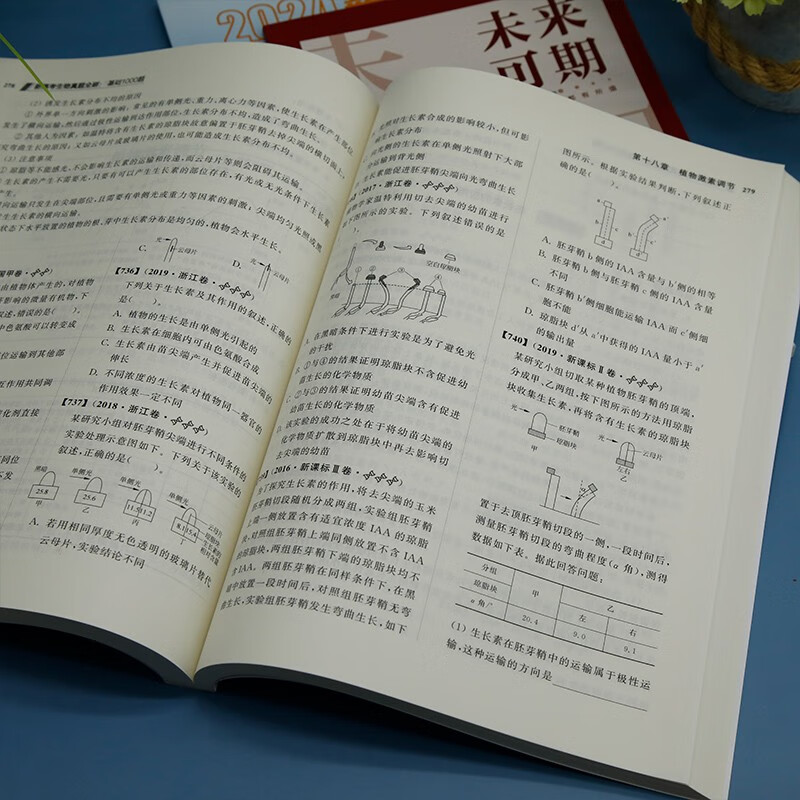 2024
未来
可期
278
基础1000题
(2)诱发生长素分布不均的原因
①外界单一方向刺激的影响,常见的有单侧光、重力、离心力等因素,使生长素在产生部位
发生了横向运输,然后通过极性运输到达作用部位,生长素分布不均,造成了弯曲生长。
②其他人为因素,如温特将含有生长素的琼脂块故意偏置于胚芽鞘去掉尖端的横切面上,
(3)注意事项
①琼脂等不能感光,不会影响生长素的运输和传递,而云母片等则会阻碍其运输。
素的产生不需要光,只要有可以产生生长素的部位存在,有光或无光条件下生长素
产生。
向运输只发生在尖端部位,且需要有单侧光或重力等因素的刺激;尖端均匀光照或黑
生生长素的横向运输。
状态下水平放置的植物的根、芽中生长素分布是均匀的,植物会水平生长。
国甲卷·
由植物体产生的,对植物
著影响的微量有机物,下
叙述,错误的是( )。
中色氨酸可以转变成
位运输到其他部
互作用共同调
化剂直接
C. 光 云母片
D. 光 云母片
【736】(2019·浙江卷·
下列关于生长素及其作用的叙述,正确的
是( )。
A. 植物的生长是由单侧光引起的
B. 生长素在细胞内可由色氨酸合成
C. 生长素由苗尖端产生并促进苗尖端的
伸长
D. 不同浓度的生长素对植物同一器官的
作用效果一定不同
【737】(2018·浙江卷·
某研究小组对胚芽鞘尖端进行不同条件的
实验处理示意图如下。下列关于该实验的
叙述,正确的是( )。
黑暗 单侧光 单侧光 单侧光
25.8 25.6 11.5 11.2 8.1 15.4
云母片
琼脂块
生长素的
相对含量
甲 乙 丙
A. 若用相同厚度无色透明的玻璃片替代
云母片,实验结论不同
光照对生长素合成的影响较小,但可影
生长素分布
光侧的生长素在单侧光照射下大部
分运输到背光侧
生长素能促进胚芽鞘尖端向光弯曲生长
(2017·浙江卷·
物学家温特利用切去尖端的幼苗进行
如下图所示的实验。下列叙述错误的是
空白琼脂块
黑暗
A. 在黑暗条件下进行实验是为了避免光
的干扰
①与④的结果证明琼脂块不含促进幼
苗生长的化学物质
C. ②与③的结果证明幼苗尖端含有促进
幼苗生长的化学物质
D. 该实验的成功之处在于将幼苗尖端的
化学物质扩散到琼脂块中再去影响切
去尖端的幼苗
(2016·新课标Ⅲ卷·
为了探究生长素的作用,将去尖端的玉米
胚芽鞘切段随机分成两组,实验组胚芽鞘
上端一侧放置含有适宜浓度 IAA 的琼脂
块,对照组胚芽鞘上端同侧放置不含 IAA
的琼脂块,两组胚芽鞘下端的琼脂块均不
含IAA。两组胚芽鞘在同样条件下,在黑
暗中放置一段时间后,对照组胚芽鞘无弯
曲生长,实验组胚芽鞘发生弯曲生长,如下
第十八章 植物激素调节 279
图所示。根据实验结果判断,下列叙述正
确的是( )。
A. 胚芽鞘b侧的IAA含量与b′侧的相等
B. 胚芽鞘b侧与胚芽鞘c侧的IAA含量
不同
C. 胚芽鞘b′侧细胞能运输IAA而c′侧细
胞不能
D. 琼脂块d′从a′中获得的IAA量小于a′
的输出量
【740】(2019·新课标Ⅱ卷·
某研究小组切取某种植物胚芽鞘的顶端,
分成甲、乙两组,按下图所示的方法用琼脂
块收集生长素,再将含有生长素的琼脂块
光 胚芽鞘 琼脂块 光 云母片
甲 左右 乙
α
置于去顶胚芽鞘切段的一侧,一段时间后,
测量胚芽鞘切段的弯曲程度(α角),测得
数据如下表。据此回答问题:
分组 甲 乙
琼脂块 左 右
α角/° 20.4 9.0 9.1
(1)生长素在胚芽鞘中的运输属于极性运
输,这种运输的方向是